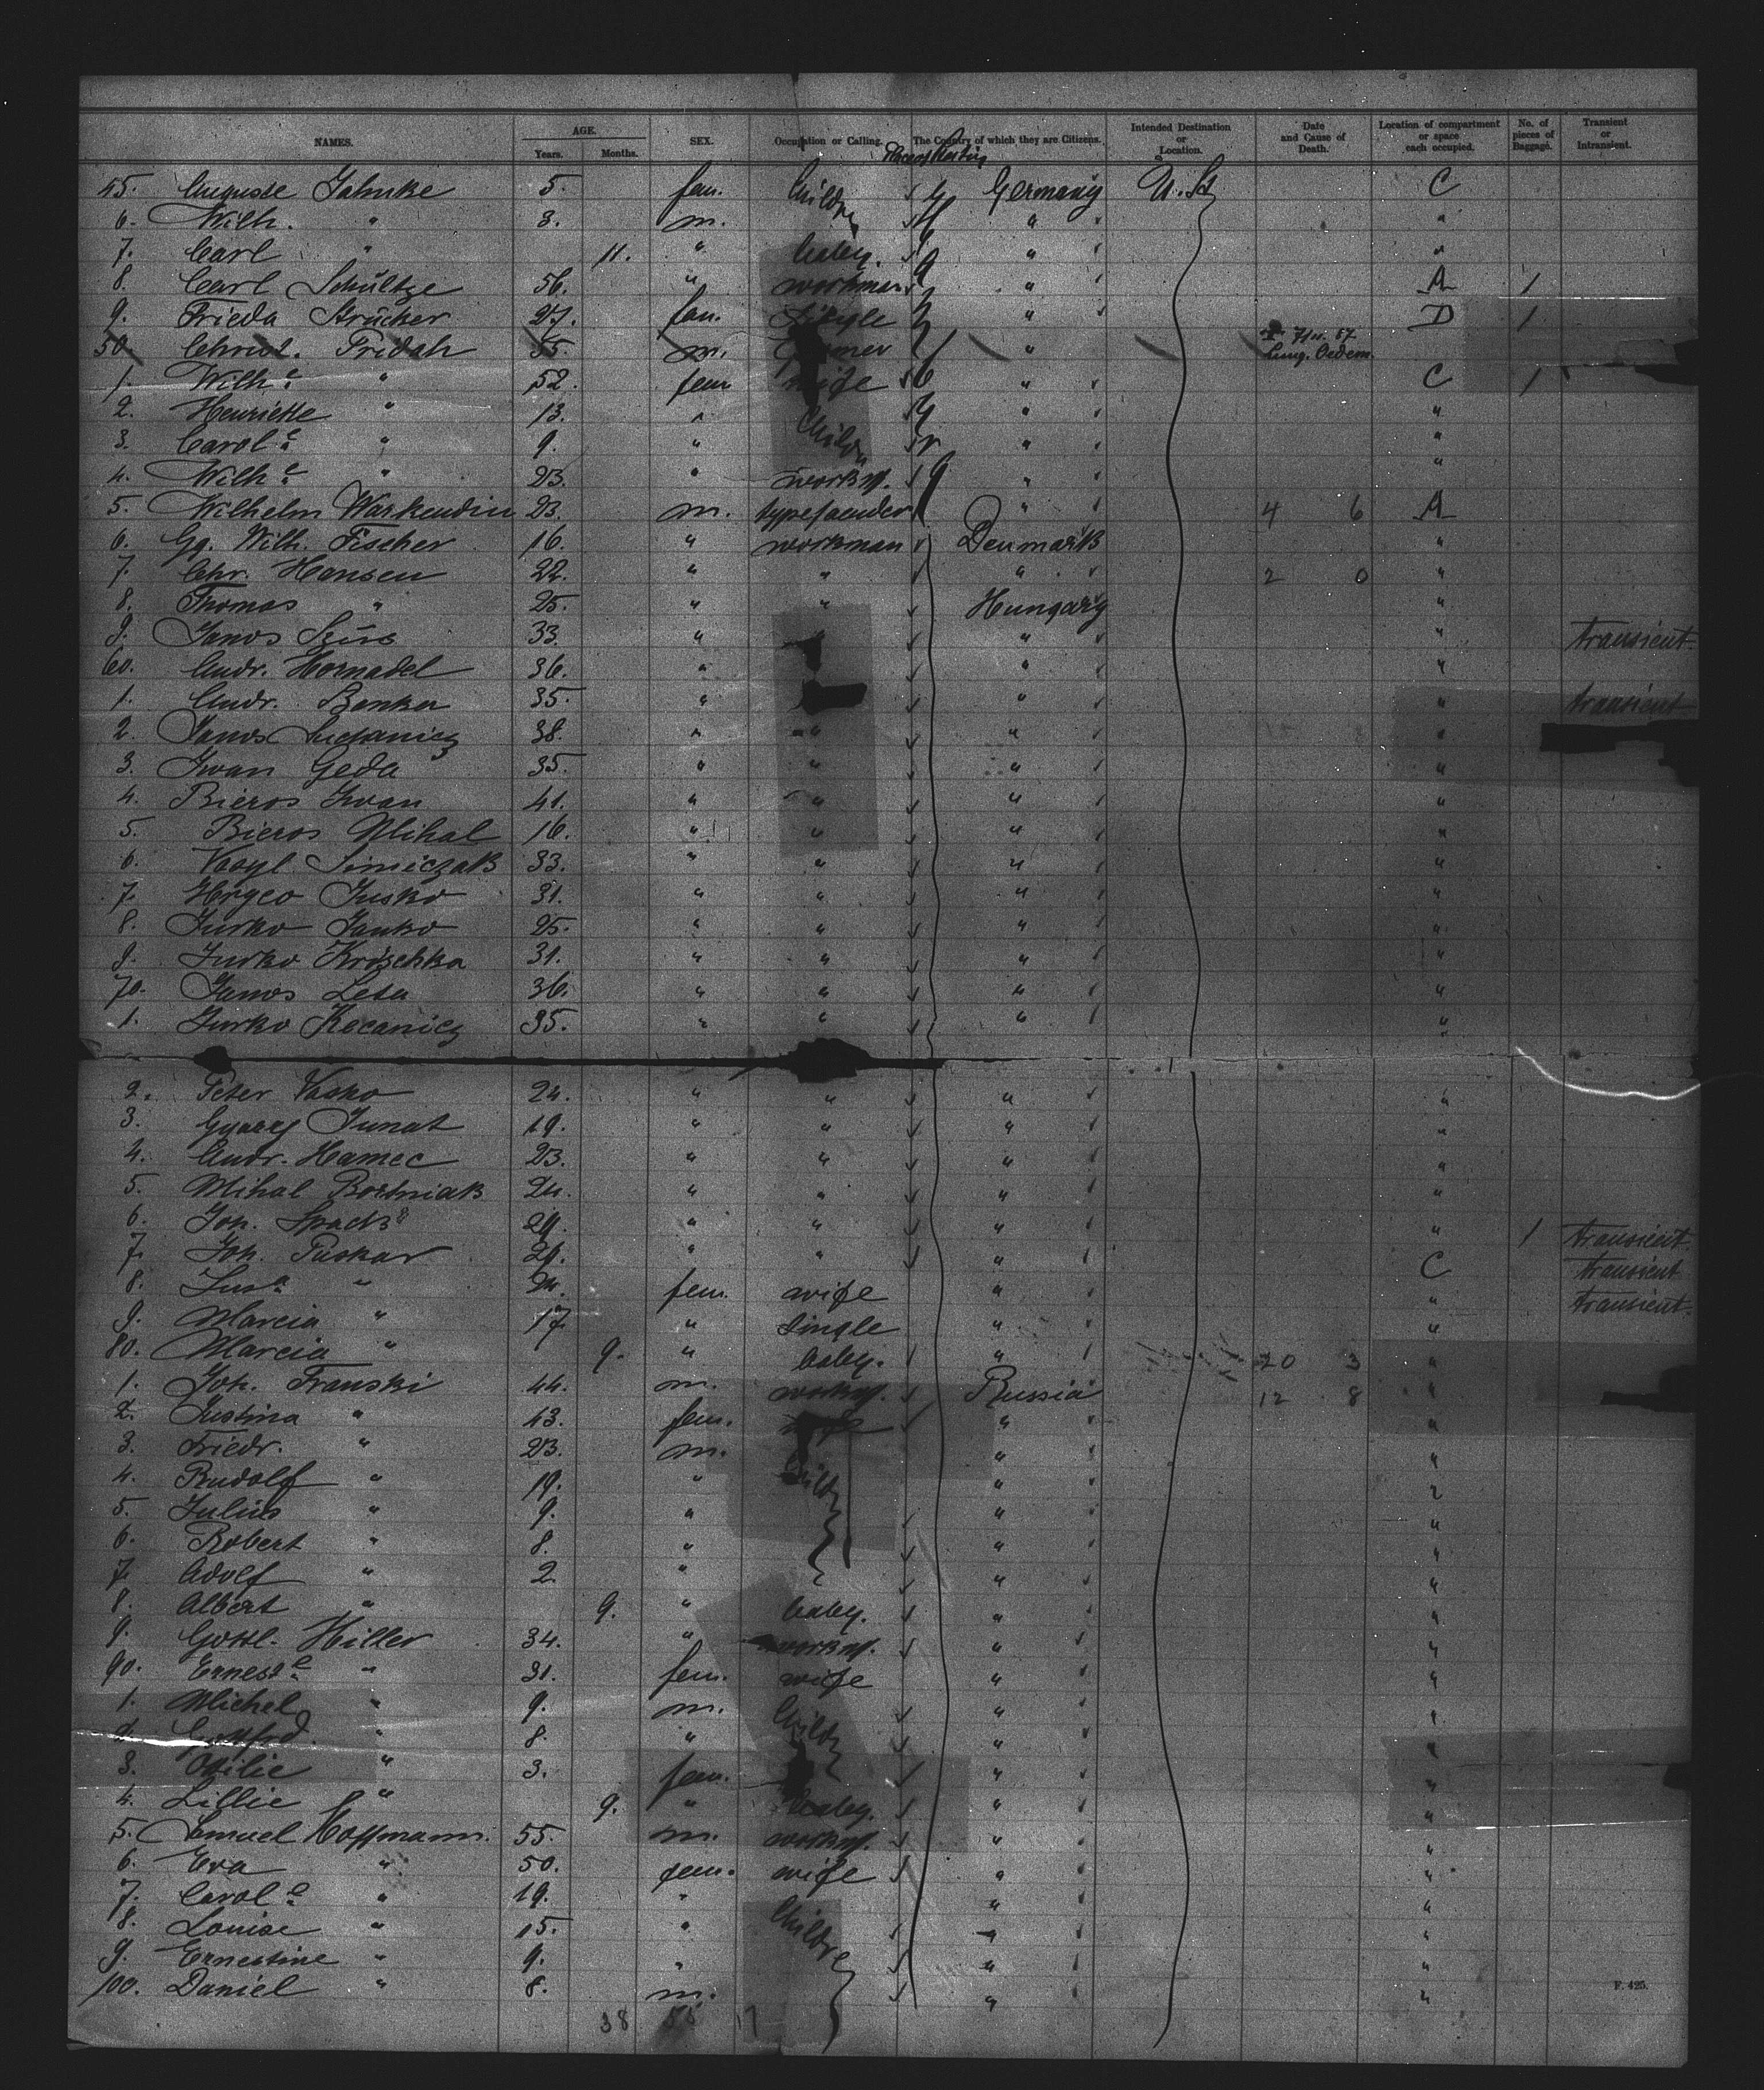 NAMES. AGE. Years. Months. SEX. Occupation or Calling. The Country of which they are Citizens. Intended Destination or Location. Date and Cause of Death. Location of compartment or space each occupied. No. of pieces of Baggage. Transient or Intransient.
45. Auguste Jahnke 5. fem. Childrn Germany U. St C
6. Wilh. " 3. m. " "
7. Carl " 11. " baby. " "
8. Carl Schultze 56. " workman " A 1
9. Frieda Strücker 27. fem. Single " D 1
50. Christ. Pridah 55. m. " Lung. Oedem.
1. Wilhe " 52. fem wife " C 1
2. Henriette " 13. " Childrn " "
3. Carole " 9. " " "
4. Wilhe " 23. " workm. " "
5. Wilhelm Warkendin 23. m. typefounder " 4 6 A
6. Gg. Wilh. Fischer 16. " workman Denmark "
7. Chr. Hansen 22. " " " 2 0 "
8. Thomas " 25. " " Hungary "
9. Janos Szüs 33. " " " " transient
60. Andr. Hornadel 36. " " "
1. Andr. Benker 35. " " " transient
2. Janos Lucanicz 38. " " " "
3. Iwan Geda 35. " " " "
4. Bieros Iwan 41. " " " "
5. Bieros Mihal 16. " " " "
6. Wasyl Simiczak 33. " " " "
7. Hryco Jusko 31. " " " "
8. Jurko Janko 25. " " " "
9. Jurko Krischka 31. " " " "
70. Janos Lesa 36. " " " "
1. Jurko Kecanicz 35. " " " "
2. Peter Vasko 24. " " " "
3. Gyorg Junat 19. " " " "
4. Andr. Hamec 23. " " " "
5. Mihal Bostniak 24. " " " "
6. Joh. 29. " " " " 1 transient
7. Joh. Puskar 26. " " " C transient
8. Susa " 24. fem. wife " " transient
9. Marcia " 17 " Single " "
80. Marcia " 9. " baby. " 20 3 "
1. Joh. Franski 44. m. workm. Russia 12 8 "
2. Justina " 43. fem. wife " "
3. Friedr. " 23. m. " "
4. Rudolf " 19. " Childr " "
5. Julius " 9. " " "
6. Robert " 8. " " "
7. Adolf " 2. " " "
8. Albert " 9. " baby. " "
9. Gottl. Hiller 34. " workm. " "
90. Erneste " 31. fem. wife " "
1. Michel " 9. m. Childr " "
2. Gottfrd. " 8. " " "
3. Ottilie " 3. fem. " "
4. Lillie " 9. " baby. " "
5. Samuel Hoffmann. 55. m. workm. " "
6. Eva " 50. fem. wife " "
7. Carole " 19. " Childre " "
8. Louise " 15. " " "
9. Ernestine " 9. " " "
100. Daniel " 8. m. " "
F. 425.
38 55 17